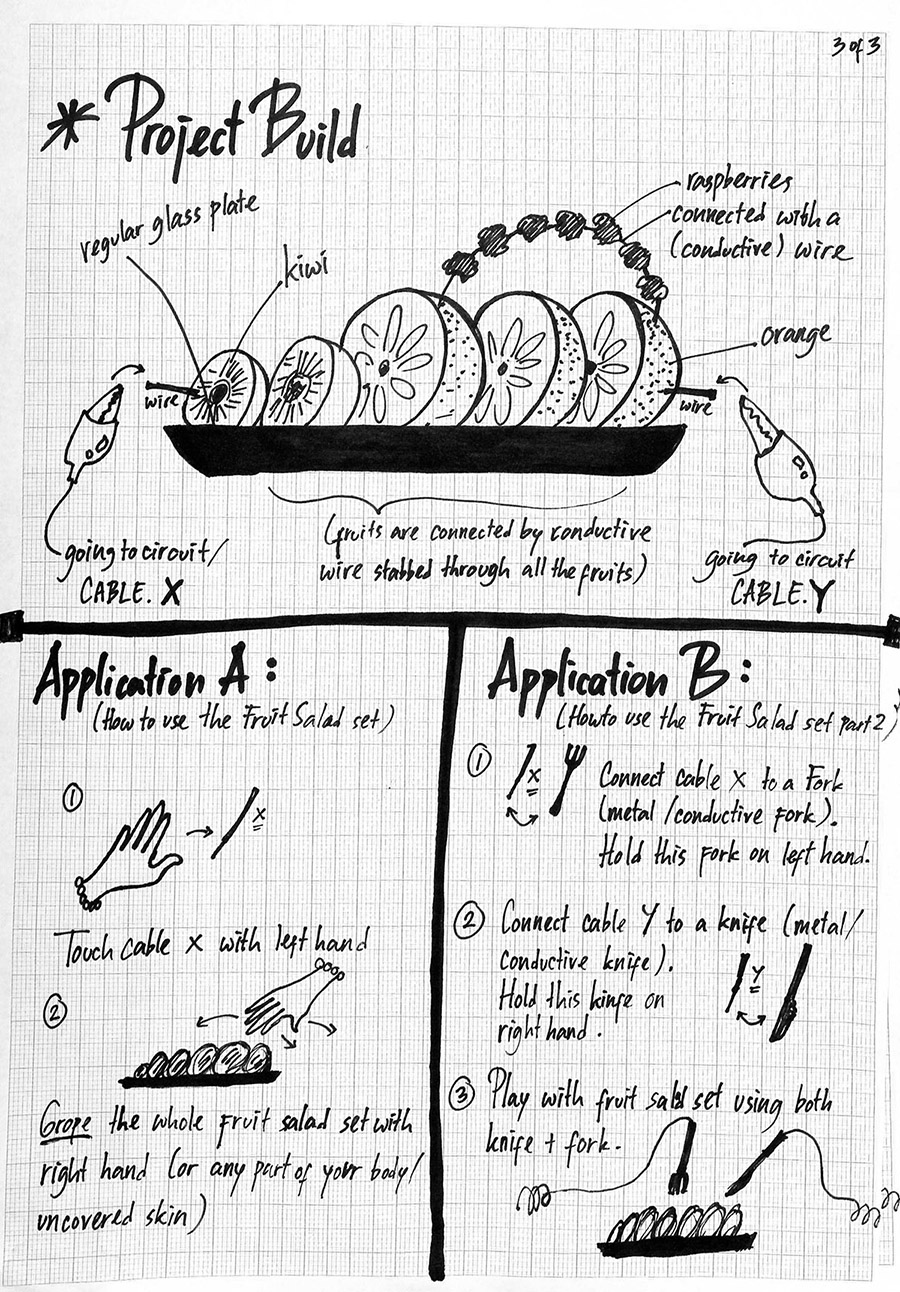 3 of 3
* Project Build
regular glass plate
kiwi
raspberries
connected with a
(conductive) wire
orange
wire
wire
going to circuit/
CABLE. X
(fruits are connected by conductive
wire stabbed through all the fruits)
going to circuit
CABLE. Y
Application A:
(How to use the Fruit Salad set)
①
X
Touch cable X with left hand
②
Grope the whole fruit salad set with
right hand (or any part of your body/
uncovered skin)
Application B:
(How to use the Fruit Salad set part 2)
①
X
Connect cable X to a Fork
(metal/conductive fork).
Hold this fork on left hand.
② Connect cable Y to a knife (metal/
conductive knife).
Hold this kinfe on
right hand.
Y
③ Play with fruit salad set using both
knife + fork.